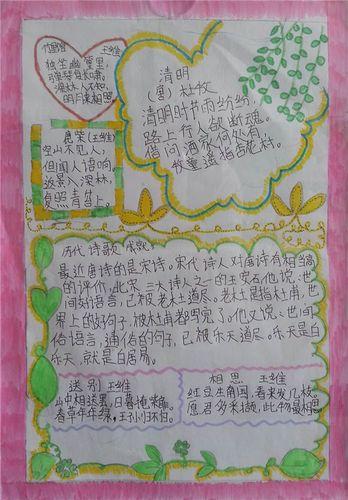 竹里馆 王维
独坐幽篁里,
弹琴复长啸,
深林人不知,
明月来相照
清明
(唐) 杜牧
清明时节雨纷纷,
路上行人欲断魂。
借问酒家何处有,
牧童遥指杏花村。
鹿柴(王维)
空山不见人,
但闻人语响。
返景入深林,
复照青苔上
历代诗歌
最近唐诗的是宋诗。宋代诗人对唐诗有相当高
的评价,北宋三大诗人之一的王安石他说,世
间好语言,已被老杜道尽。老杜是指杜甫,世
界上的好句子,被杜甫都写完了。他又说:世间
俗语言,通俗的句子,已被乐天道尽。乐天是白
乐天,就是白居易。
送别 王维
山中相送罢,日暮掩柴扉。
春草年年绿,王孙归不归。
相思 王维
红豆生南国,春来发几枝。
愿君多采撷,此物最相思